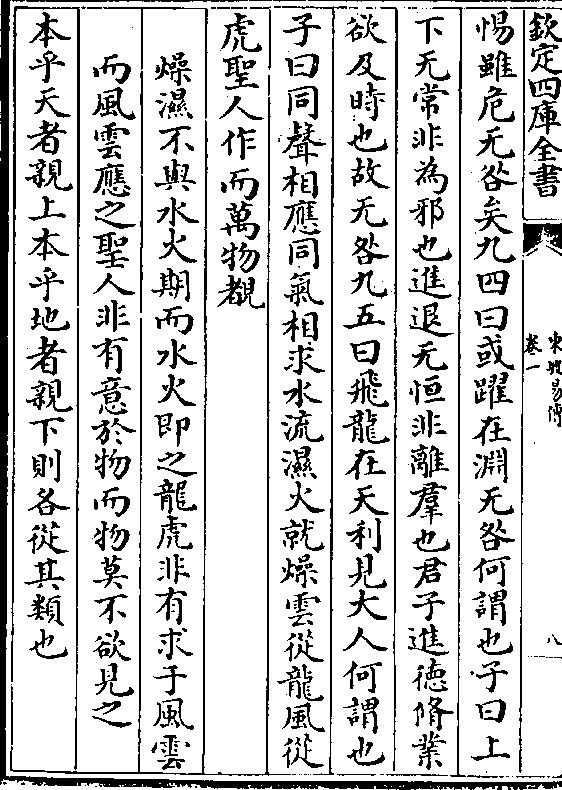 欽定四庫全書
東坡易傳
卷一
八
惕雖危无咎矣九四曰或躍在淵无咎何謂也子曰上
下无常非為邪也進退无恒非離羣也君子進徳脩業
欲及時也故无咎九五曰飛龍在天利見大人何謂也
子曰同聲相應同氣相求水流濕火就燥雲從龍風從
虎聖人作而萬物覩
燥濕不與水火期而水火即之龍虎非有求于風雲
而風雲應之聖人非有意於物而物莫不欲見之
本乎天者親上本乎地者親下則各從其類也